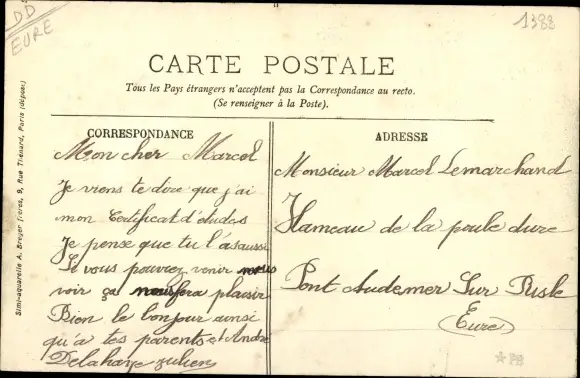 DD
EURE
1388
CARTE POSTALE
Tous les Pays étrangers n'acceptent pas la Correspondance au recto.
(Se renseigner à la Poste).
Simili-aquarelle A. Breger Frères, 9, Rue Thénard, Paris (déposé)
CORRESPONDANCE
Mon cher Marcel
Je viens te dire que j'ai
mon Certificat d'études
Je pense que tu l'as aussi
Si vous pouvez venir nous
voir ça nous fera plaisir
Bien le bonjour ainsi
qu'a tes parents et André
Delahaye Julien
ADRESSE
Monsieur Marcel Lemarchand
Hameau de la poule dure
Pont Audemer Sur Risle
(Eure)